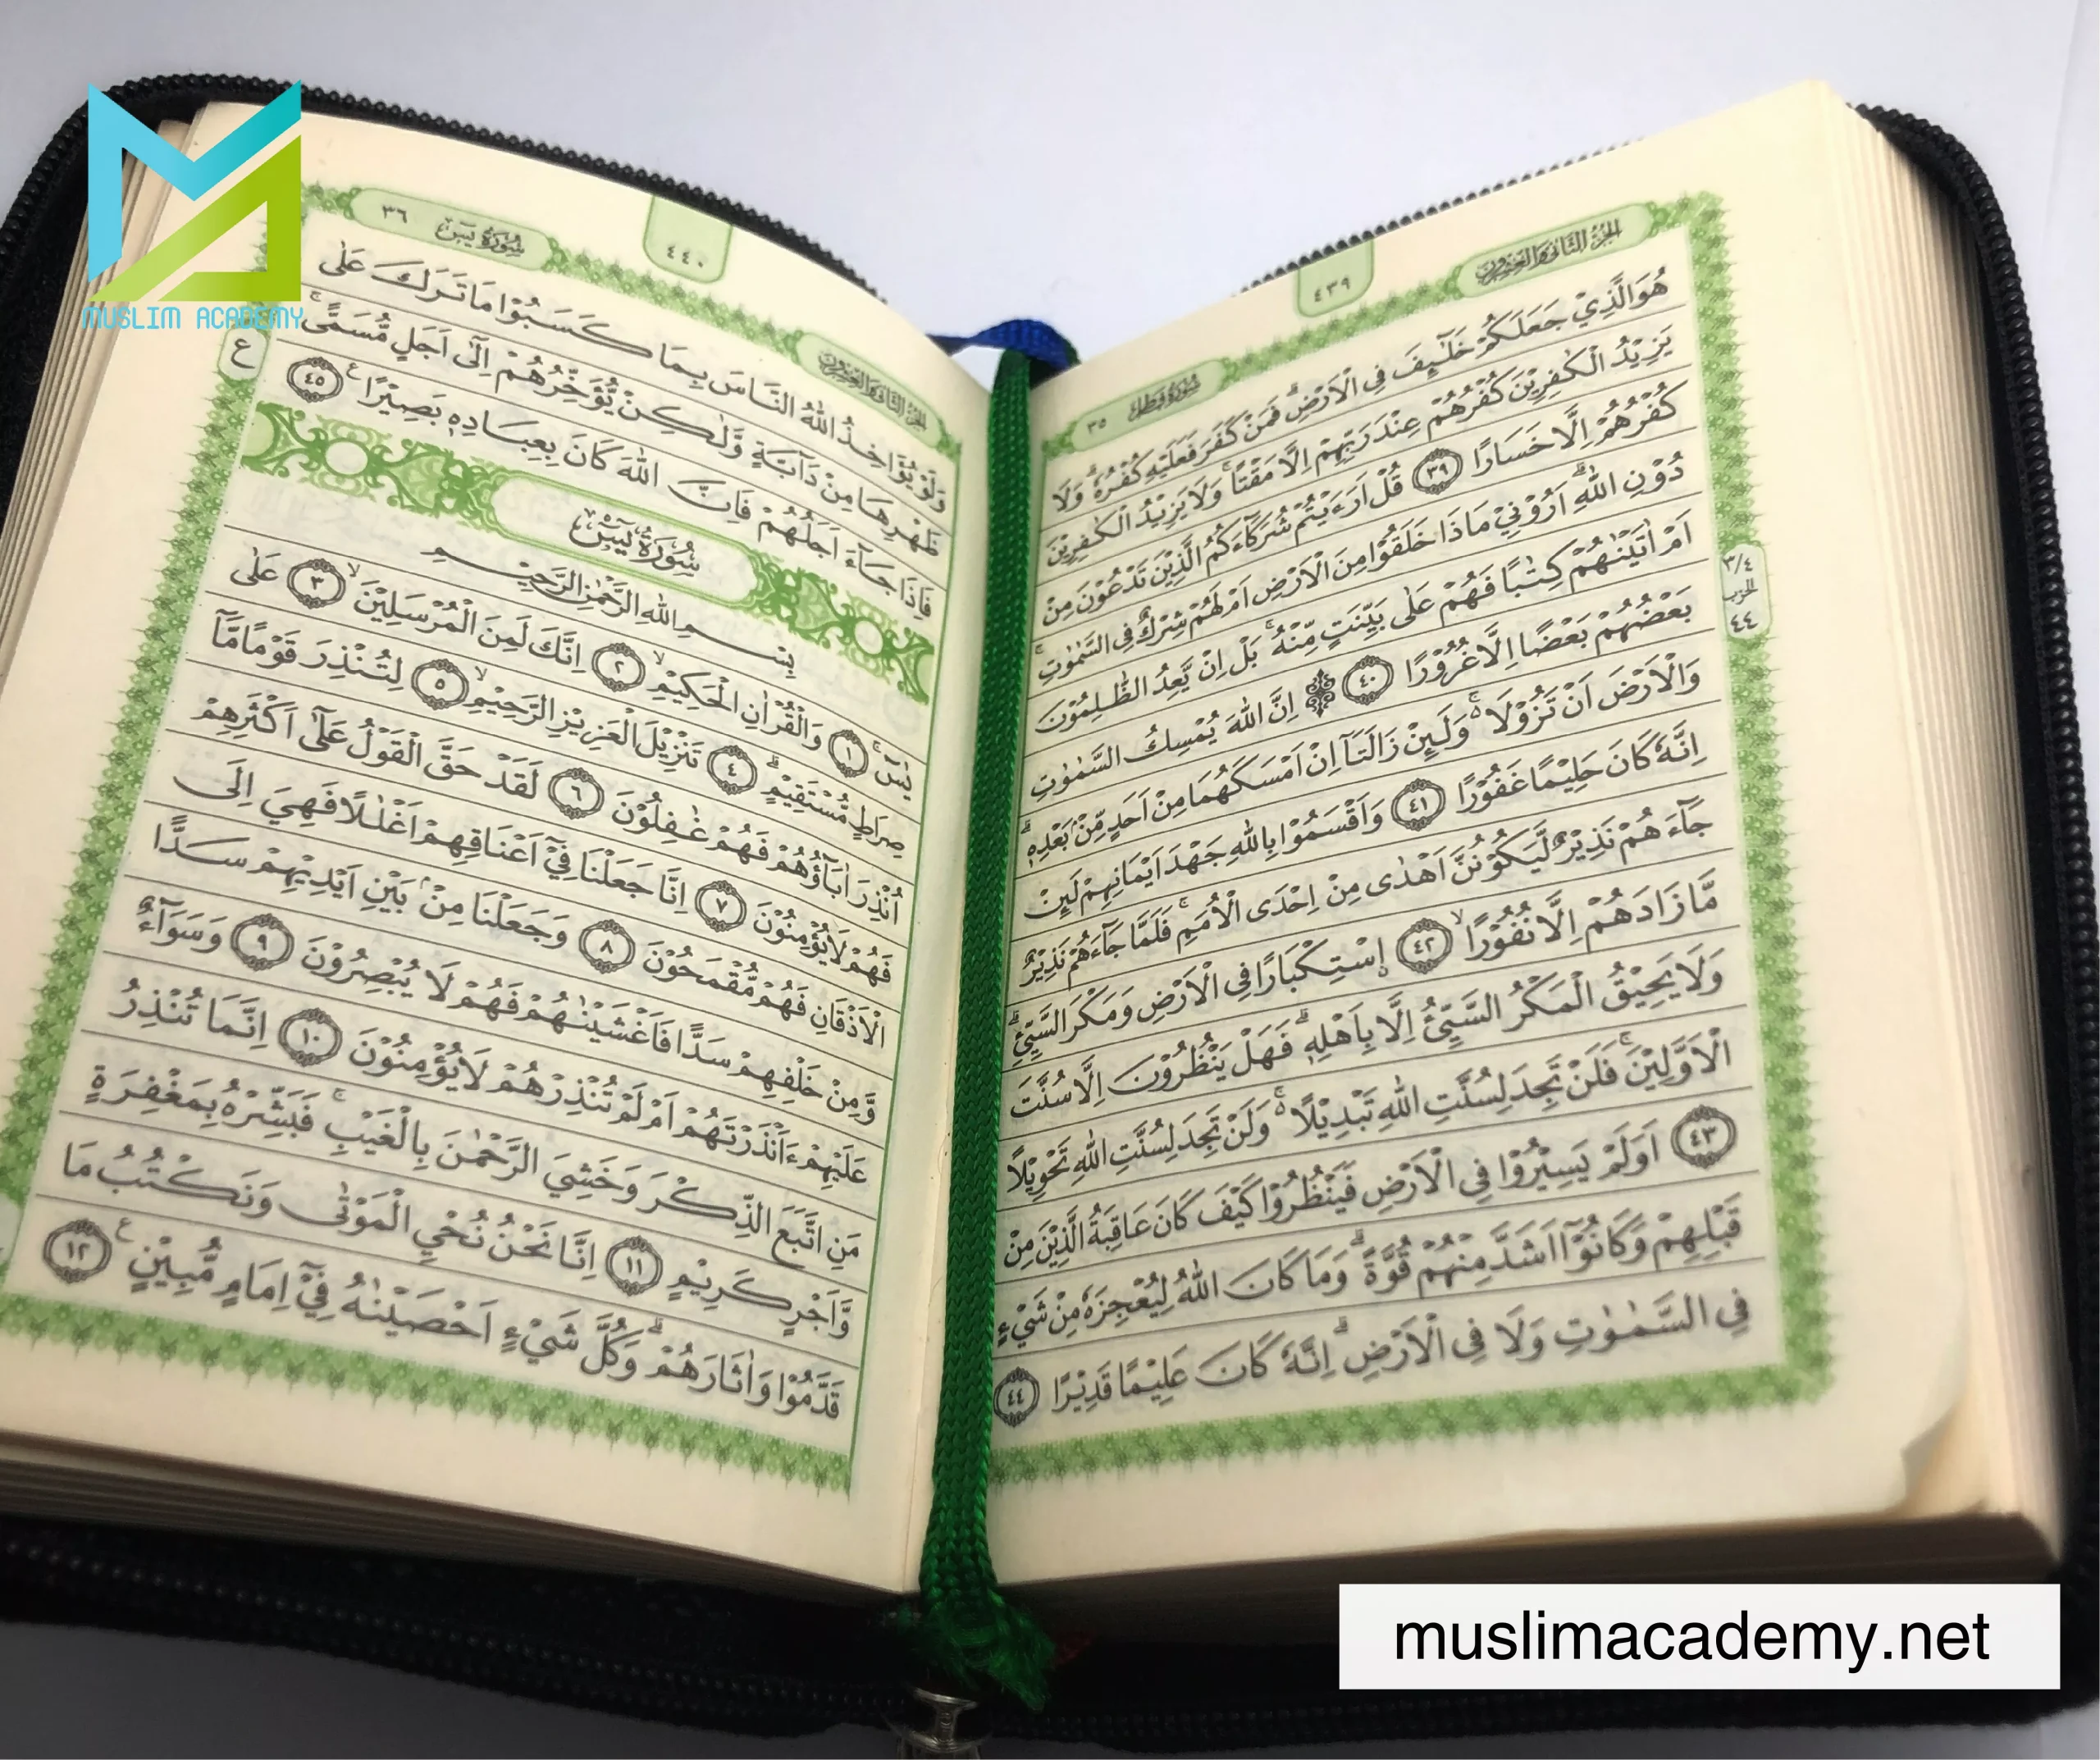 MUSLIM ACADEMY
الجزء الثاني والعشرون
٤٣٩
سورة فاطر ٣٥
هُوَ الَّذِيْ جَعَلَكُمْ خَلٰۤىِٕفَ فِى الْاَرْضِۗ فَمَنْ كَفَرَ فَعَلَيْهِ كُفْرُهٗۗ وَلَا
يَزِيْدُ الْكٰفِرِيْنَ كُفْرُهُمْ عِنْدَ رَبِّهِمْ اِلَّا مَقْتًاۚ وَلَا يَزِيْدُ الْكٰفِرِيْنَ
كُفْرُهُمْ اِلَّا خَسَارًا ٣٩ قُلْ اَرَءَيْتُمْ شُرَكَاۤءَكُمُ الَّذِيْنَ تَدْعُوْنَ مِنْ
دُوْنِ اللّٰهِۗ اَرُوْنِيْ مَاذَا خَلَقُوْا مِنَ الْاَرْضِ اَمْ لَهُمْ شِرْكٌ فِى السَّمٰوٰتِۚ
اَمْ اٰتَيْنٰهُمْ كِتٰبًا فَهُمْ عَلٰى بَيِّنَتٍ مِّنْهُۚ بَلْ اِنْ يَّعِدُ الظّٰلِمُوْنَ
بَعْضُهُمْ بَعْضًا اِلَّا غُرُوْرًا ٤٠ ۞ اِنَّ اللّٰهَ يُمْسِكُ السَّمٰوٰتِ
وَالْاَرْضَ اَنْ تَزُوْلَا ەۚ وَلَىِٕنْ زَالَتَآ اِنْ اَمْسَكَهُمَا مِنْ اَحَدٍ مِّنْۢ بَعْدِهٖۗ
اِنَّهٗ كَانَ حَلِيْمًا غَفُوْرًا ٤١ وَاَقْسَمُوْا بِاللّٰهِ جَهْدَ اَيْمَانِهِمْ لَىِٕنْ
جَاۤءَهُمْ نَذِيْرٌ لَّيَكُوْنُنَّ اَهْدٰى مِنْ اِحْدَى الْاُمَمِۚ فَلَمَّا جَاۤءَهُمْ نَذِيْرٌ
مَّا زَادَهُمْ اِلَّا نُفُوْرًاۙ ٤٢ اِسْتِكْبَارًا فِى الْاَرْضِ وَمَكْرَ السَّيِّئِۗ
وَلَا يَحِيْقُ الْمَكْرُ السَّيِّئُ اِلَّا بِاَهْلِهٖۗ فَهَلْ يَنْظُرُوْنَ اِلَّا سُنَّتَ
الْاَوَّلِيْنَۚ فَلَنْ تَجِدَ لِسُنَّتِ اللّٰهِ تَبْدِيْلًا ەۚ وَلَنْ تَجِدَ لِسُنَّتِ اللّٰهِ تَحْوِيْلًا
٤٣ اَوَلَمْ يَسِيْرُوْا فِى الْاَرْضِ فَيَنْظُرُوْا كَيْفَ كَانَ عَاقِبَةُ الَّذِيْنَ مِنْ
قَبْلِهِمْ وَكَانُوْٓا اَشَدَّ مِنْهُمْ قُوَّةًۗ وَمَا كَانَ اللّٰهُ لِيُعْجِزَهٗ مِنْ شَيْءٍ
فِى السَّمٰوٰتِ وَلَا فِى الْاَرْضِۗ اِنَّهٗ كَانَ عَلِيْمًا قَدِيْرًا ٤٤
٣/٤
الحزب
٤٤
الجزء الثاني والعشرون
٤٤٠
سورة يس ٣٦
وَلَوْ يُؤَاخِذُ اللّٰهُ النَّاسَ بِمَا كَسَبُوْا مَا تَرَكَ عَلٰى
ظَهْرِهَا مِنْ دَاۤبَّةٍ وَّلٰكِنْ يُّؤَخِّرُهُمْ اِلٰٓى اَجَلٍ مُّسَمًّىۚ
فَاِذَا جَاۤءَ اَجَلُهُمْ فَاِنَّ اللّٰهَ كَانَ بِعِبَادِهٖ بَصِيْرًا ࣖ ٤٥
ع
سورة يس
بِسْمِ اللّٰهِ الرَّحْمٰنِ الرَّحِيْمِ
يٰسۤۚ ١ وَالْقُرْاٰنِ الْحَكِيْمِۙ ٢ اِنَّكَ لَمِنَ الْمُرْسَلِيْنَۙ ٣ عَلٰى
صِرَاطٍ مُّسْتَقِيْمٍۗ ٤ تَنْزِيْلَ الْعَزِيْزِ الرَّحِيْمِۙ ٥ لِتُنْذِرَ قَوْمًا مَّآ
اُنْذِرَ اٰبَاۤؤُهُمْ فَهُمْ غٰفِلُوْنَ ٦ لَقَدْ حَقَّ الْقَوْلُ عَلٰٓى اَكْثَرِهِمْ
فَهُمْ لَا يُؤْمِنُوْنَ ٧ اِنَّا جَعَلْنَا فِيْٓ اَعْنَاقِهِمْ اَغْلٰلًا فَهِيَ اِلَى
الْاَذْقَانِ فَهُمْ مُّقْمَحُوْنَ ٨ وَجَعَلْنَا مِنْۢ بَيْنِ اَيْدِيْهِمْ سَدًّا
وَّمِنْ خَلْفِهِمْ سَدًّا فَاَغْشَيْنٰهُمْ فَهُمْ لَا يُبْصِرُوْنَ ٩ وَسَوَاۤءٌ
عَلَيْهِمْ ءَاَنْذَرْتَهُمْ اَمْ لَمْ تُنْذِرْهُمْ لَا يُؤْمِنُوْنَ ١٠ اِنَّمَا تُنْذِرُ
مَنِ اتَّبَعَ الذِّكْرَ وَخَشِيَ الرَّحْمٰنَ بِالْغَيْبِۚ فَبَشِّرْهُ بِمَغْفِرَةٍ
وَّاَجْرٍ كَرِيْمٍ ١١ اِنَّا نَحْنُ نُحْيِ الْمَوْتٰى وَنَكْتُبُ مَا
قَدَّمُوْا وَاٰثَارَهُمْۗ وَكُلَّ شَيْءٍ اَحْصَيْنٰهُ فِيْٓ اِمَامٍ مُّبِيْنٍ ࣖ ١٢
muslimacademy.net